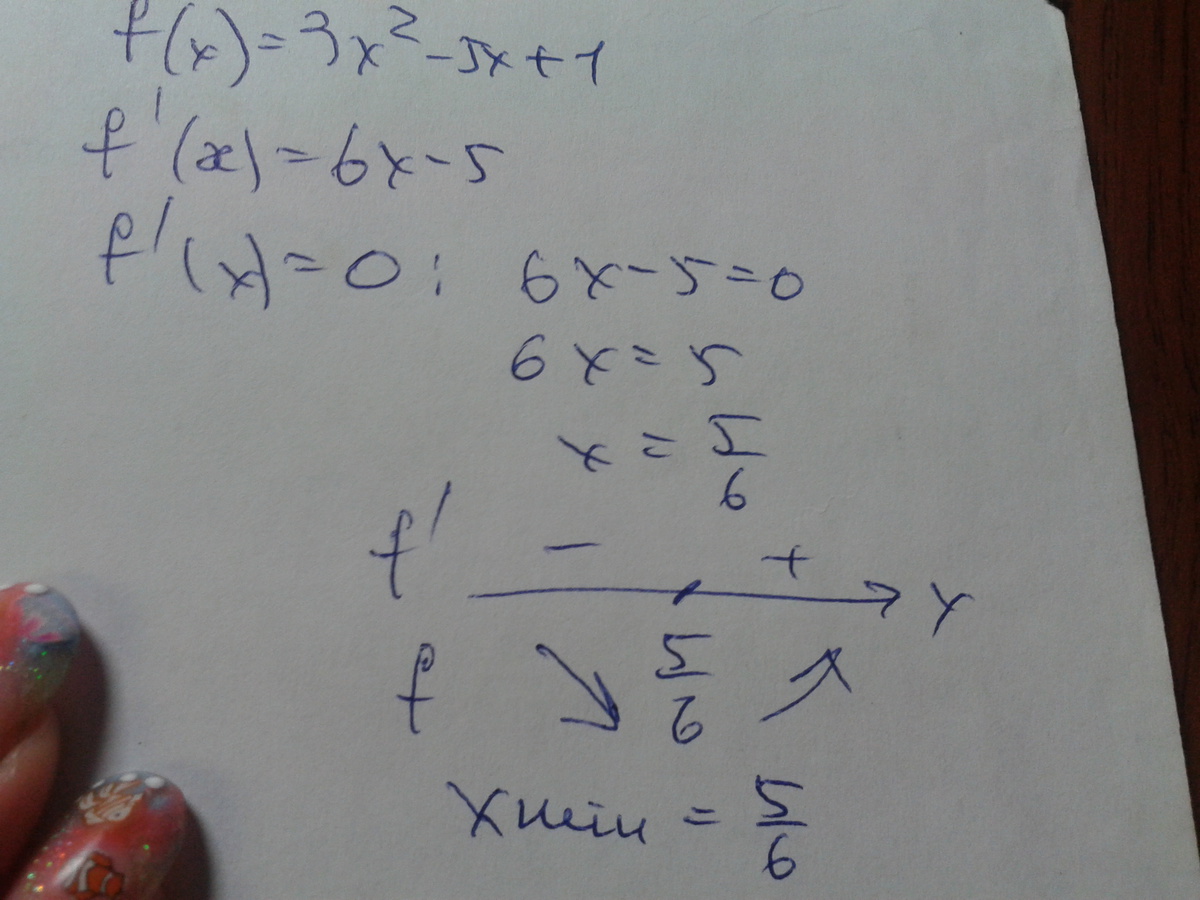 f(x)=3x²-5x+1
f'(x)=6x-5
f'(x)=0: 6x-5=0
6x=5
x=5/6
f' - + x
f 5/6
xmin=5/6